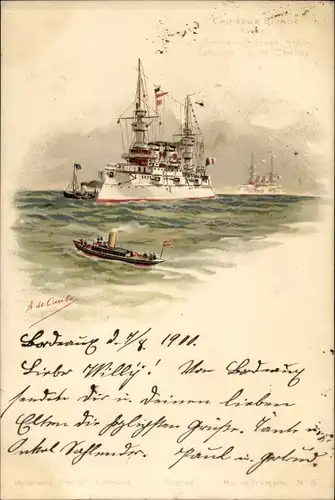 CROISEUR BLINDÉ
A. de Caula
Bordeaux d. 7/8 1900.
Lieber Willy! Von Bordeaux
sendet Dir u. Deinen lieben
Eltern die herzlichsten Grüße. Tante u.
Onkel Sahlender. Paul u.
Marine Française N° 5